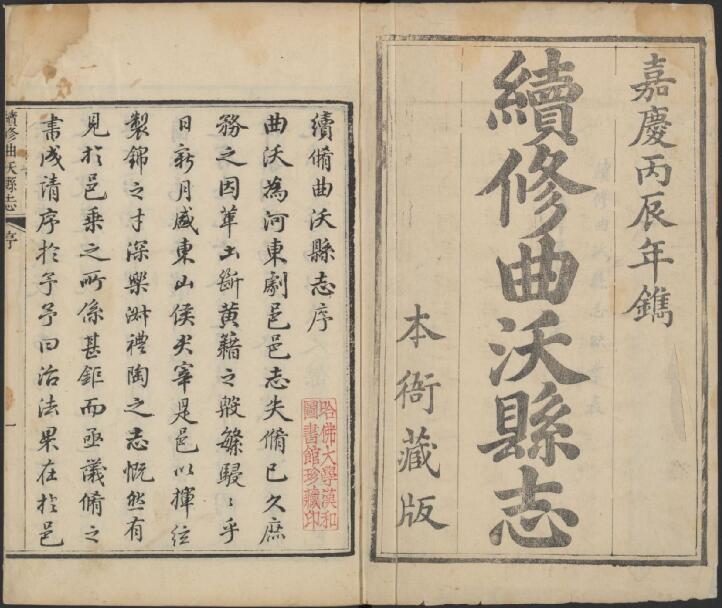 嘉慶丙辰年鐫
續修曲沃縣志
本衙藏版
續脩曲沃縣志序
曲沃為河東劇邑邑志失脩已久庶
務之因革土斷黃籍之殷繁駸〻乎
日新月盛東山侯尹宰是邑以揮絃
製錦之才深樂淋禮陶之志慨然有
見於邑乘之所係甚鉅而亟議脩之
書成請序於予予曰治法果在於邑
續修曲沃縣志
序
一
哈佛大學漢和
圖書館珍藏印